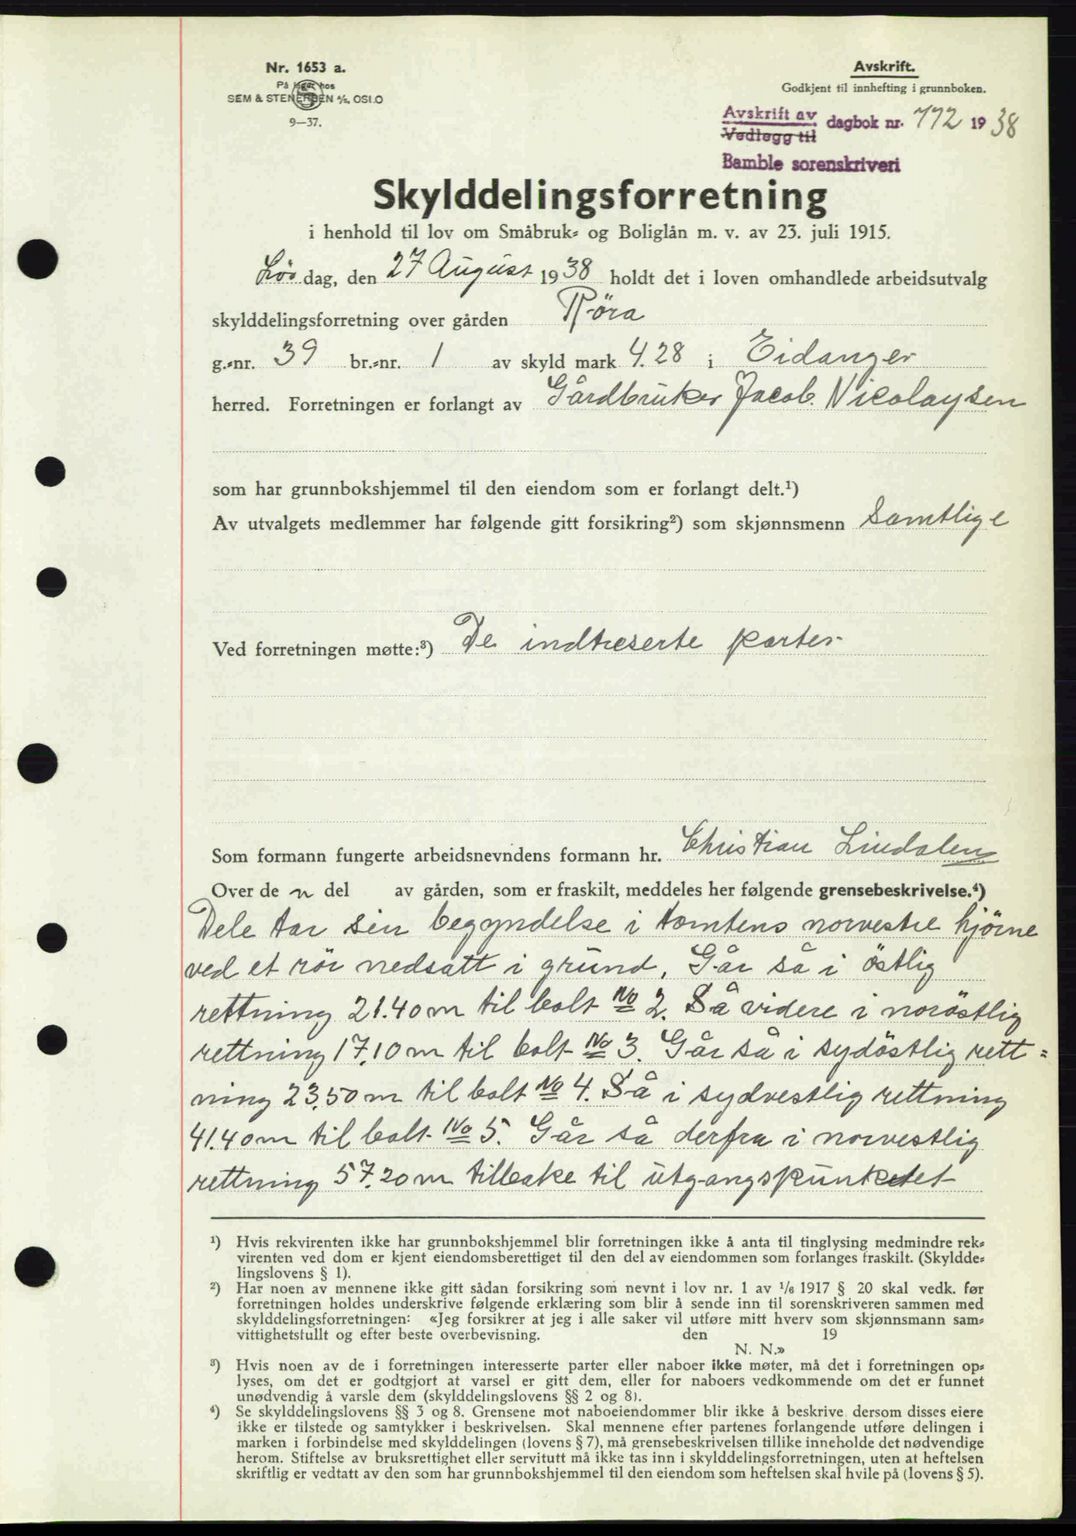 Nr. 1653 a.
På lager hos
SEM & STENERSEN A/S, OSLO
9—37.
Avskrift.
Godkjent til innhefting i grunnboken.
Avskrift av
Vedlegg til
dagbok nr. 772 1938
Bamble sorenskriveri
Skylddelingsforretning
i henhold til lov om Småbruk- og Boliglån m. v. av 23. juli 1915.
Lördag, den 27 August 1938 holdt det i loven omhandlede arbeidsutvalg
skylddelingsforretning over gården Röra
g.-nr. 39 br.-nr. 1 av skyld mark 4.28 i Eidanger
herred. Forretningen er forlangt av Gårdbruker Jacob. Nicolaysen
som har grunnbokshjemmel til den eiendom som er forlangt delt.¹)
Av utvalgets medlemmer har følgende gitt forsikring²) som skjønnsmenn Samtlige
Ved forretningen møtte:³) De indtreserte parter
Som formann fungerte arbeidsnevndens formann hr. Christian Lindalen
Over de n del av gården, som er fraskilt, meddeles her følgende grensebeskrivelse.⁴)
Dele tar sin begyndelse i tomtens norvestre hjörne
ved et rör nedsatt i grund, Går så i östlig
rettning 21.40 m til bolt No 2. Så videre i noröstlig
rettning 17,10 m til bolt No 3. Går så i sydöstlig rett-
ning 23,50 m til bolt No 4. Så i sydvestlig rettning
41.40 m til bolt No 5. Går så derfra i norvestlig
rettning 57,20 m tilbake til utgangspunktet
¹) Hvis rekvirenten ikke har grunnbokshjemmel blir forretningen ikke å anta til tinglysing medmindre rek-
virenten ved dom er kjent eiendomsberettiget til den del av eiendommen som forlanges fraskilt. (Skyldde-
lingslovens § 1).
²) Har noen av mennene ikke gitt sådan forsikring som nevnt i lov nr. 1 av ¹/₆ 1917 § 20 skal vedk. før
forretningen holdes underskrive følgende erklæring som blir å sende inn til sorenskriveren sammen med
skylddelingsforretningen: «Jeg forsikrer at jeg i alle saker vil utføre mitt hverv som skjønnsmann sam-
vittighetsfullt og efter beste overbevisning. den 19
N. N.»
³) Hvis noen av de i forretningen interesserte parter eller naboer ikke møter, må det i forretningen op-
lyses, om det er godtgjort at varsel er gitt dem, eller for naboers vedkommende om det er funnet
unødvendig å varsle dem (skylddelingslovens §§ 2 og 8).
⁴) Se skylddelingslovens §§ 3 og 8. Grensene mot naboeiendommer blir ikke å beskrive dersom disses eiere
ikke er tilstede og samtykker i beskrivelsen. Skal mennene efter partenes forlangende utføre delingen i
marken i forbindelse med skylddelingen (lovens § 7), må grensebeskrivelsen tillike inneholde det nødvendige
herom. Stiftelse av bruksrettighet eller servitutt må ikke tas inn i skylddelingsforretningen, uten at heftelsen
skriftlig er vedtatt av den som har grunnbokshjemmel til den eiendom som heftelsen skal hvile på (lovens § 5).